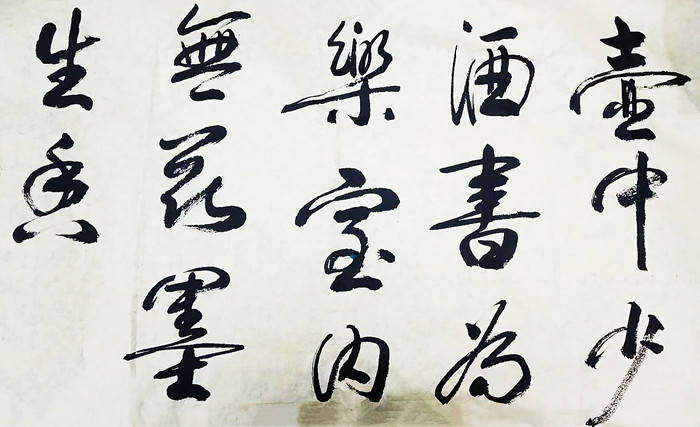 壺中少
酒書為
樂室內
無花墨
生香